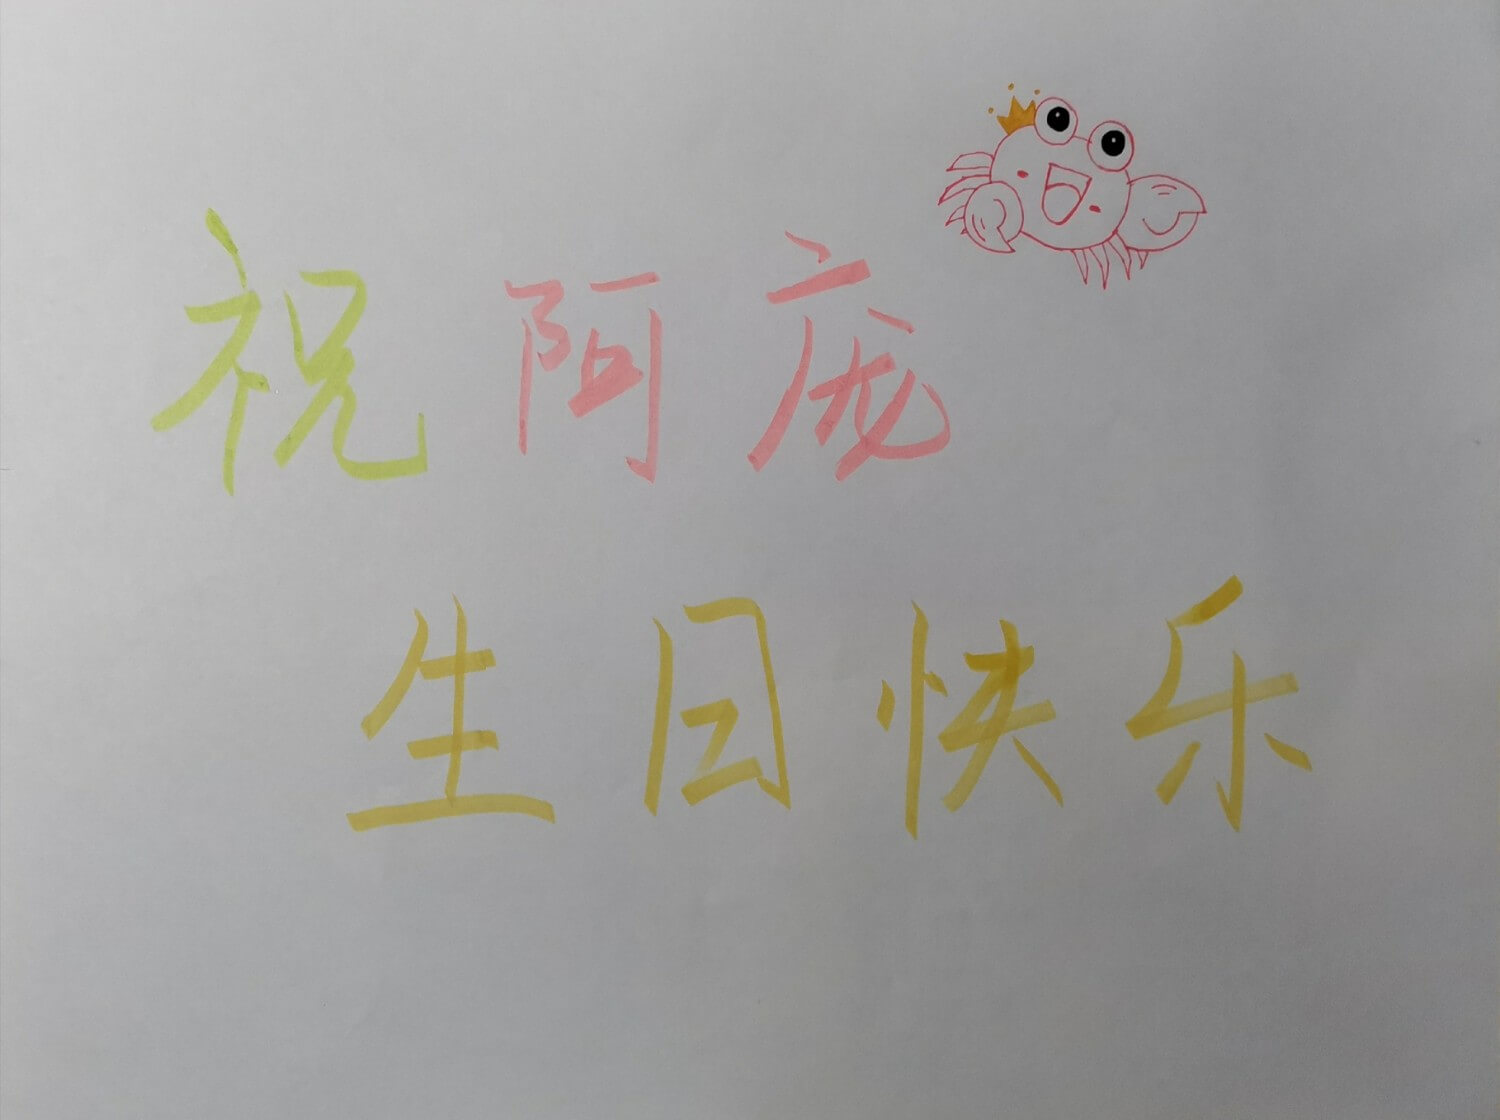 祝阿庞
生日快乐